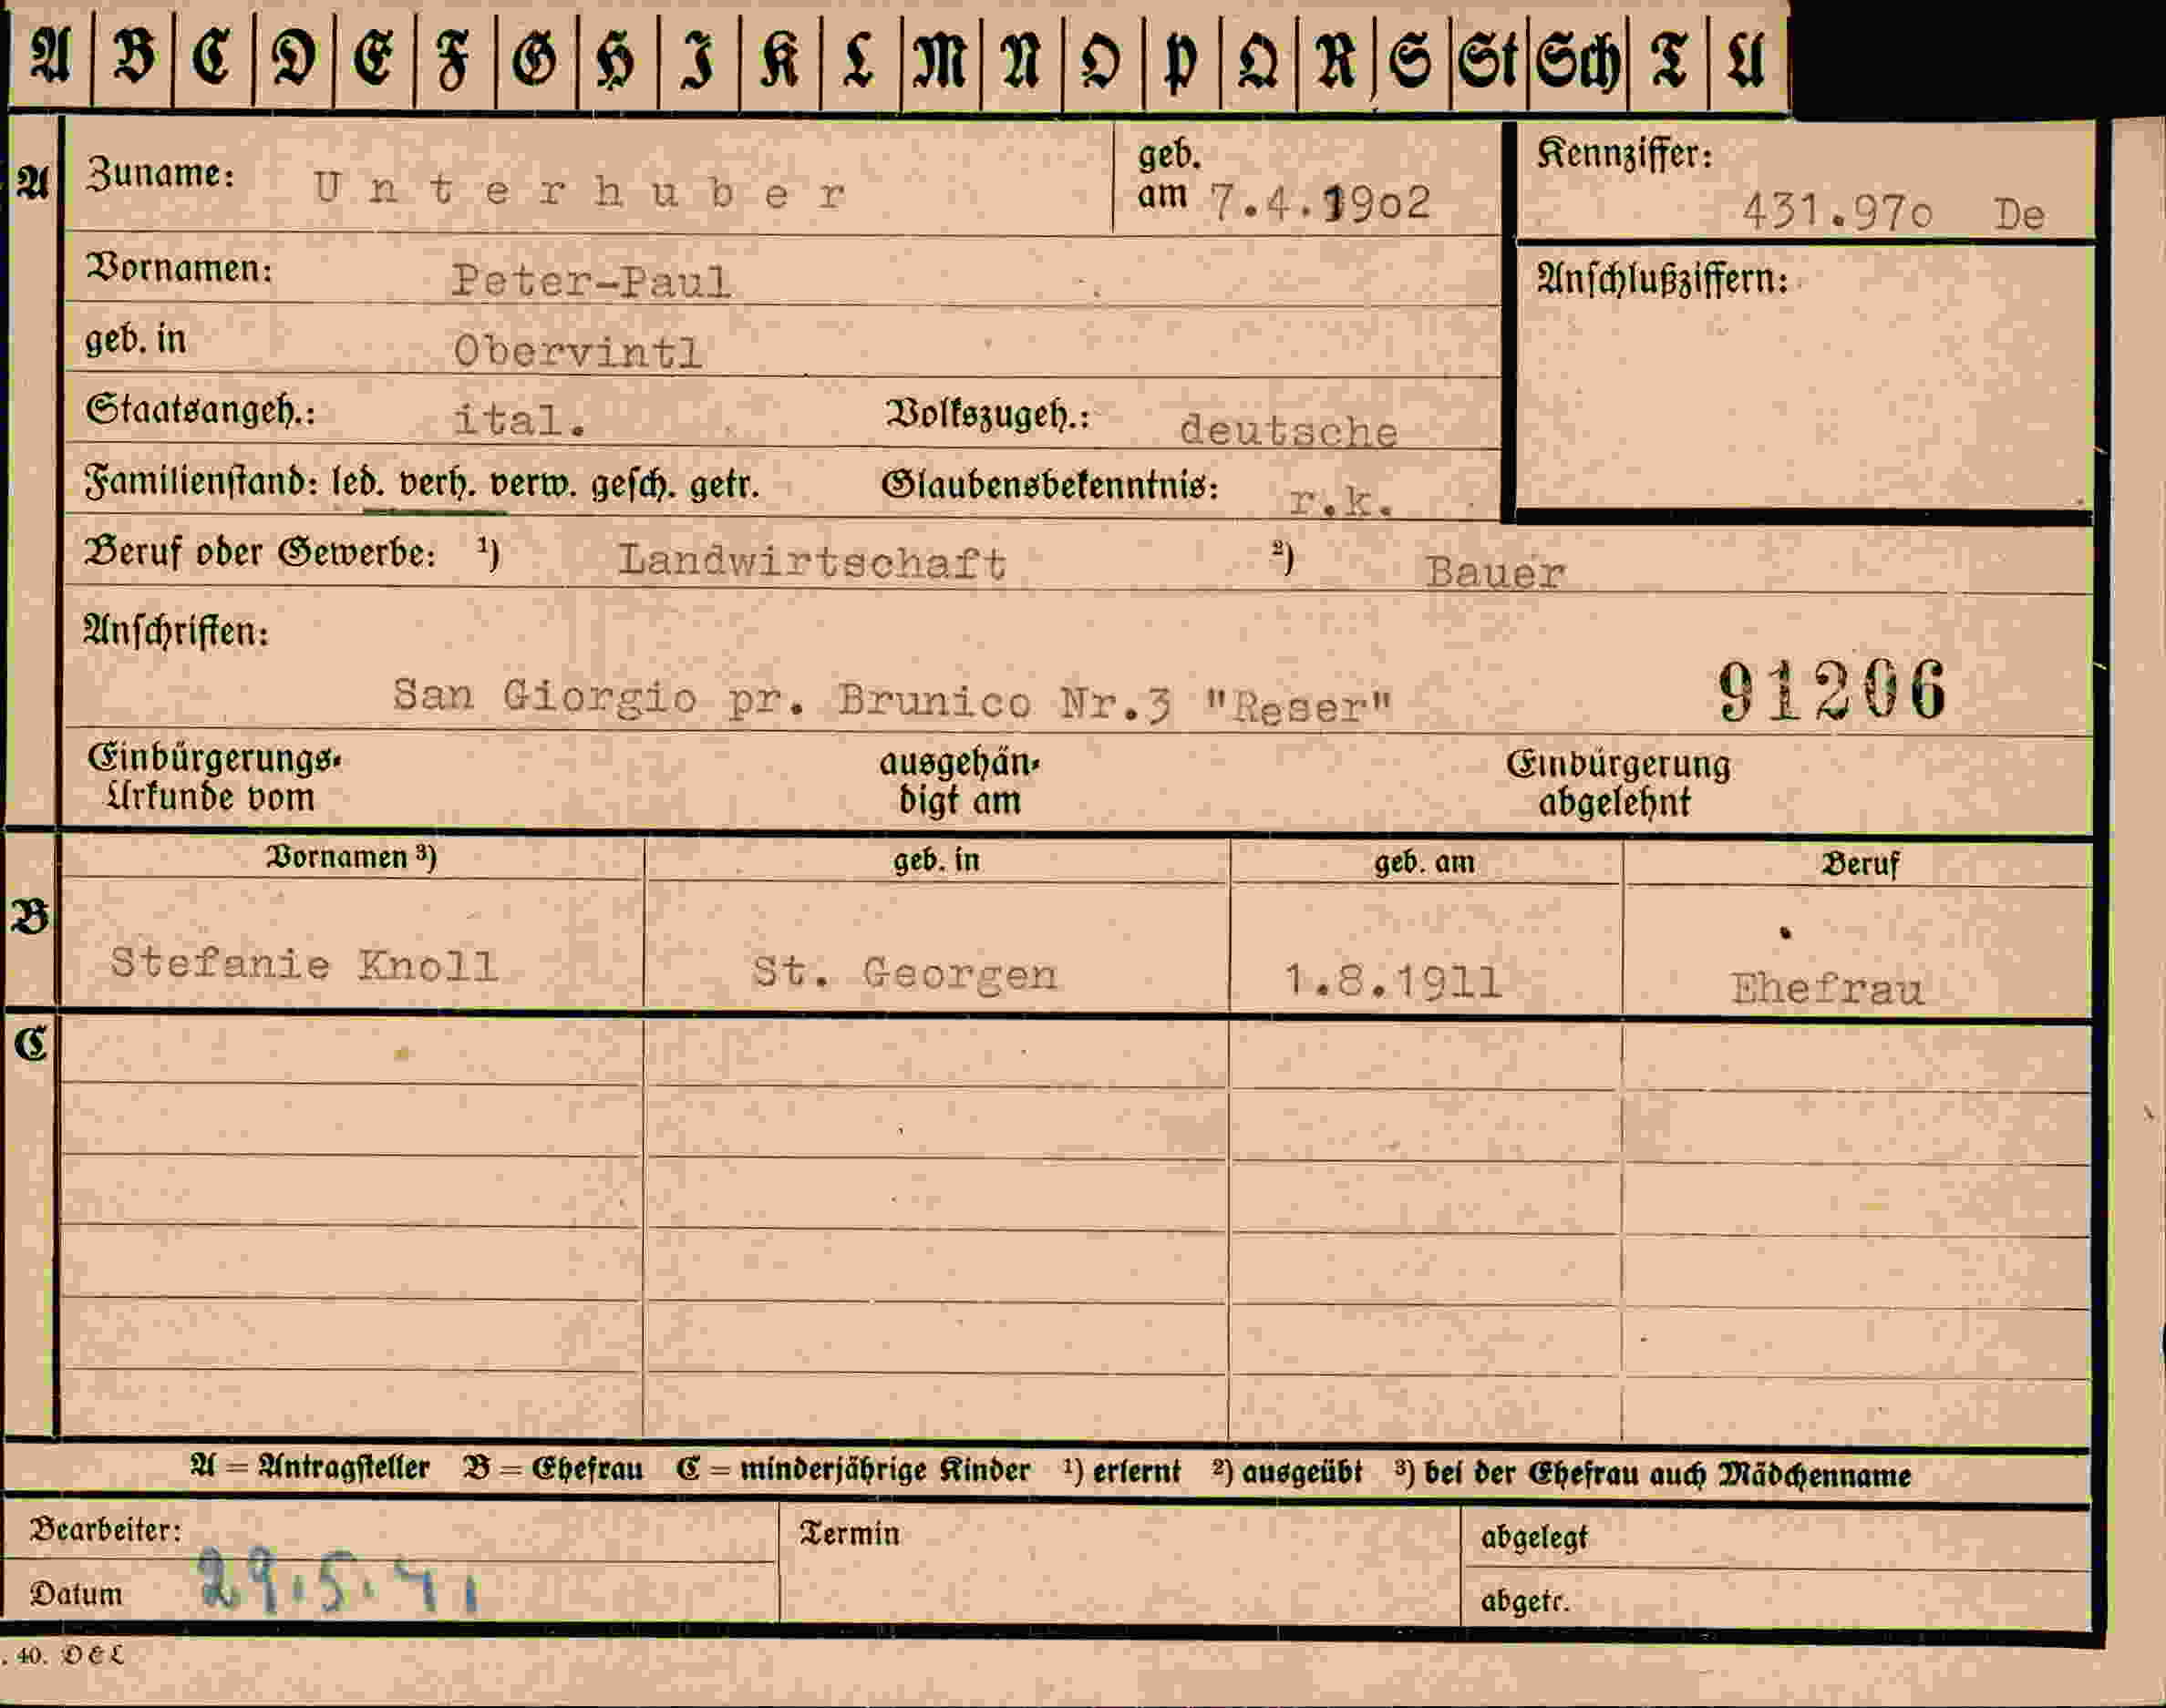 A B C D E F G H I K L M N O P Q R S St Sch T U
A Zuname: Unterhuber geb. am 7.4.1902 Kennziffer: 431.970 De
Vornamen: Peter-Paul Anschlußziffern:
geb. in Obervintl
Staatsangeh.: ital. Volkszugeh.: deutsche
Familienstand: led. verh. verw. gesch. getr. Glaubensbekenntnis: r.k.
Beruf oder Gewerbe: ¹) Landwirtschaft ²) Bauer
Anschriften:
San Giorgio pr. Brunico Nr.3 "Reser" 91206
Einbürgerungs- ausgehän- Einbürgerung
Urkunde vom digt am abgelehnt
Vornamen ³) geb. in geb. am Beruf
B Stefanie Knoll St. Georgen 1.8.1911 Ehefrau
C
A = Antragsteller B = Ehefrau C = minderjährige Kinder ¹) erlernt ²) ausgeübt ³) bei der Ehefrau auch Mädchenname
Bearbeiter: Termin abgelegt
Datum 29.5.41 abgetr.
. 40. DEL